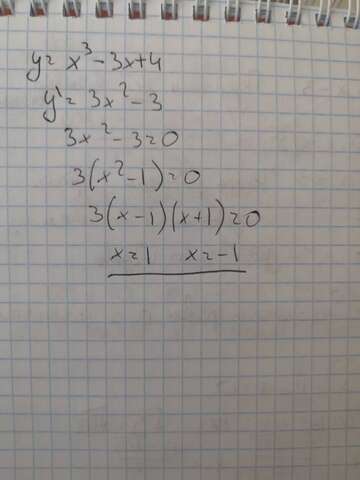 y = x³ - 3x + 4
y' = 3x² - 3
3x² - 3 = 0
3(x² - 1) = 0
3(x - 1)(x + 1) = 0
x = 1 x = -1